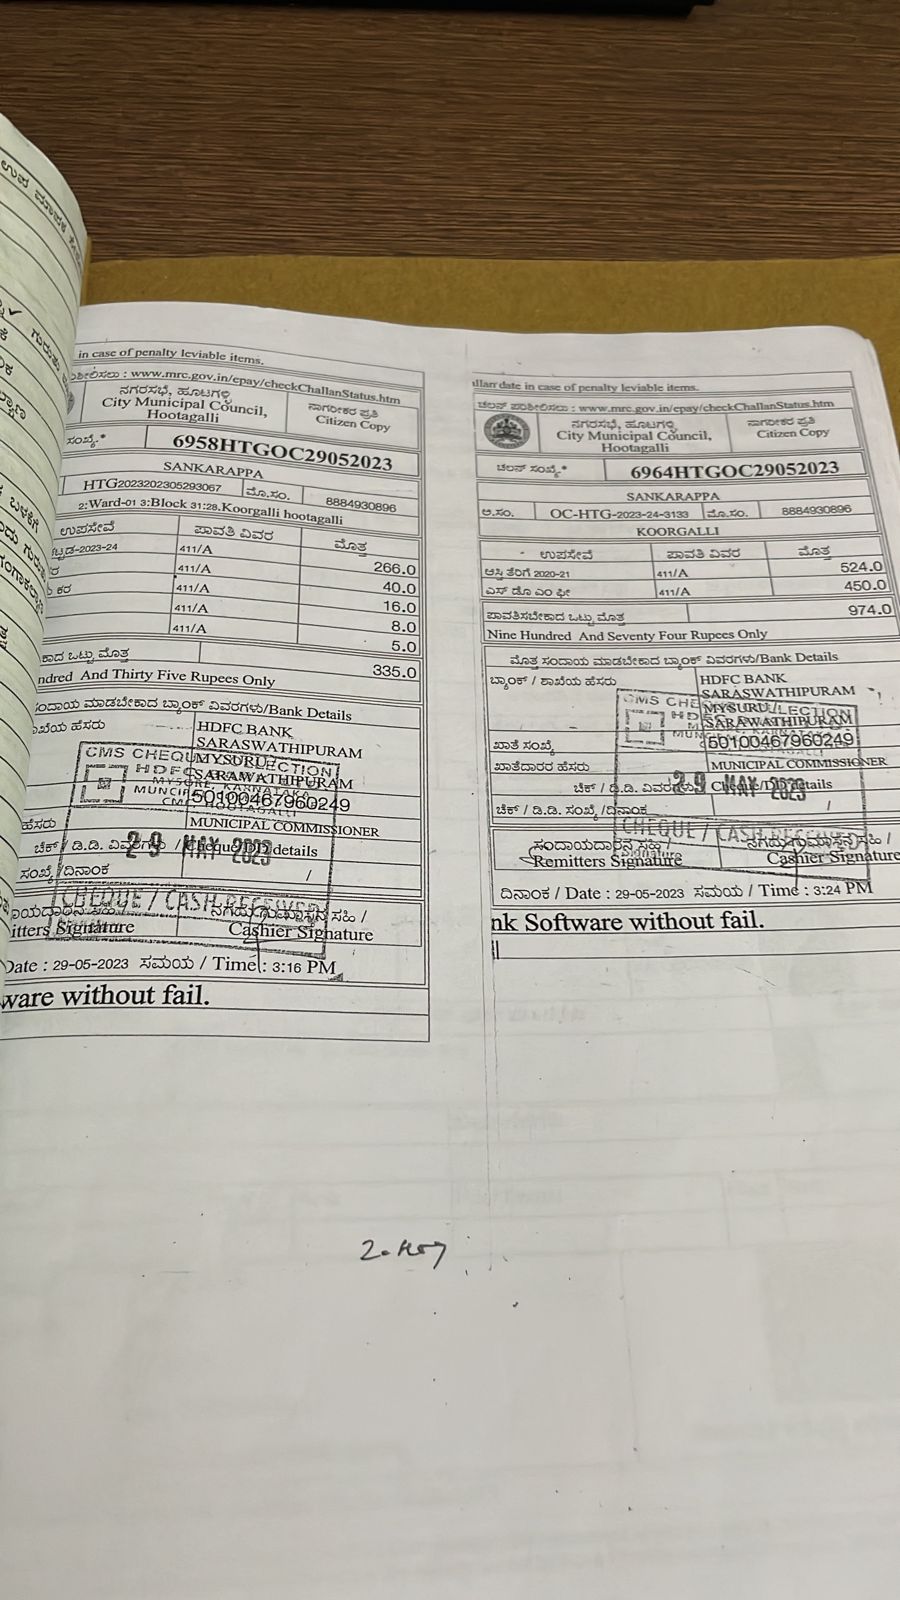 ಉಪ ಮಾಪಕ
in case of penalty leviable items.
: www.mrc.gov.in/epay/checkChallanStatus.htm
ನಗರಸಭೆ, ಹೂಟಗಳ್ಳಿ
City Municipal Council,
Hootagalli
ನಾಗರೀಕರ ಪ್ರತಿ
Citizen Copy
ಸಂಖ್ಯೆ.* 6958HTGOC29052023
SANKARAPPA
HTG2023202305293067 ಮೊ.ಸಂ. 8884930896
2:Ward-01 3:Block 31:28.Koorgalli hootagalli
ಉಪಸೇವೆ ಪಾವತಿ ವಿವರ ಮೊತ್ತ
-2023-24 411/A 266.0
411/A 40.0
ಕರ 411/A 16.0
411/A 8.0
411/A 5.0
ಕಾದ ಒಟ್ಟು ಮೊತ್ತ 335.0
ndred And Thirty Five Rupees Only
ಸಂದಾಯ ಮಾಡಬೇಕಾದ ಬ್ಯಾಂಕ್ ವಿವರಗಳು/Bank Details
ಶಾಖೆಯ ಹೆಸರು HDFC BANK
SARASWATHIPURAM
MYSURU
SARAWATHIPURAM
50100467960249
ಹೆಸರು MUNICIPAL COMMISSIONER
ಚೆಕ್ / ಡಿ.ಡಿ. ವಿವರಗಳು / Cheque/DD details
ಸಂಖ್ಯೆ/ದಿನಾಂಕ /
CMS CHEQUE COLLECTION
HDFC
MYSORE, KARNATAKA
29 MAY 2023
CHEQUE / CASH RECEIVED
itters Signature
ನಗದು ಗುಮಾಸ್ತನ ಸಹಿ /
Cashier Signature
Date : 29-05-2023 ಸಮಯ / Time : 3:16 PM
ware without fail.
allan date in case of penalty leviable items.
ಚಲನ್ ಪರಿಶೀಲಿಸಲು : www.mrc.gov.in/epay/checkChallanStatus.htm
ನಗರಸಭೆ, ಹೂಟಗಳ್ಳಿ
City Municipal Council,
Hootagalli
ನಾಗರೀಕರ ಪ್ರತಿ
Citizen Copy
ಚಲನ್ ಸಂಖ್ಯೆ* 6964HTGOC29052023
SANKARAPPA
ಅ.ಸಂ. OC-HTG-2023-24-3133 ಮೊ.ಸಂ. 8884930896
KOORGALLI
ಉಪಸೇವೆ ಪಾವತಿ ವಿವರ ಮೊತ್ತ
ಆಸ್ತಿ ತೆರಿಗೆ 2020-21 411/A 524.0
ಎಸ್ ಡೊ ಎಂ ಫೀ 411/A 450.0
ಪಾವತಿಸಬೇಕಾದ ಒಟ್ಟು ಮೊತ್ತ 974.0
Nine Hundred And Seventy Four Rupees Only
ಮೊತ್ತ ಸಂದಾಯ ಮಾಡಬೇಕಾದ ಬ್ಯಾಂಕ್ ವಿವರಗಳು/Bank Details
ಬ್ಯಾಂಕ್ / ಶಾಖೆಯ ಹೆಸರು HDFC BANK
SARASWATHIPURAM
MYSURU
SARAWATHIPURAM
ಖಾತೆ ಸಂಖ್ಯೆ 50100467960249
ಖಾತೆದಾರರ ಹೆಸರು MUNICIPAL COMMISSIONER
ಚೆಕ್ / ಡಿ.ಡಿ. ವಿವರಗಳು / Cheque/DD details
ಚೆಕ್ / ಡಿ.ಡಿ. ಸಂಖ್ಯೆ/ದಿನಾಂಕ /
29 MAY 2023
CHEQUE / CASH RECEIVED
ಸಂದಾಯದಾರನ ಸಹಿ /
Remitters Signature
ನಗದು ಗುಮಾಸ್ತನ ಸಹಿ /
Cashier Signature
ದಿನಾಂಕ / Date : 29-05-2023 ಸಮಯ / Time : 3:24 PM
nk Software without fail.